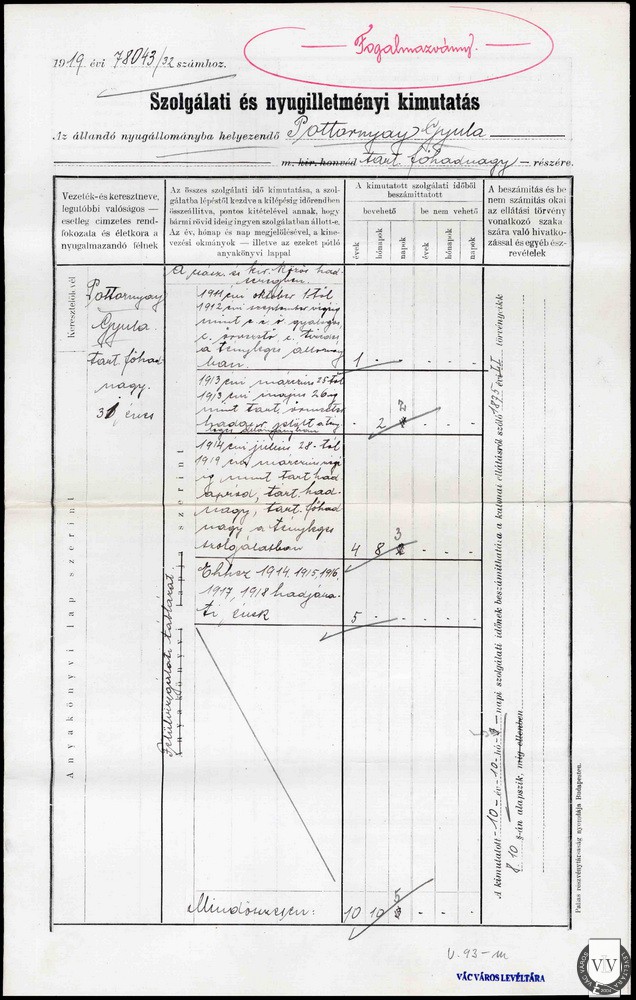 Fogalmazvány.
1919. évi 78043/32 számhoz.
Szolgálati és nyugilletményi kimutatás
Az állandó nyugállományba helyezendő Pottornyay Gyula
m. kir. honvéd tart. főhadnagy – részére.
Vezeték- és keresztneve,
legutóbbi valóságos —
esetleg címzetes rend-
fokozata és életkora a
nyugalmazandó félnek
Az összes szolgálati idő kimutatása, a szol-
gálatba lépéstől kezdve a kilépésig időrendben
összeállítva, pontos kitételével annak, hogy
bármi rövid ideig ingyen szolgálatban állott-e.
Az év, hónap és nap megjelölésével, a kine-
vezési okmányok — illetve az ezeket pótló
anyakönyvi lappal
A kimutatott szolgálati időből
beszámíttatott
bevehető
be nem vehető
évek
hónapok
napok
évek
hónapok
napok
A beszámítás és be
nem számítás okai
az ellátási törvény
vonatkozó szaka-
szára való hivatko-
zással és egyéb ész-
revételek
Keresztlevél
Anyakönyvi lap szerint
Pottornyay
Gyula
tart. főhad-
nagy.
31 éves
Felülvizsgálati táblázat
Anyakönyvi lapja szerint
A császári és kir. közös had-
seregben.
1911 évi október 1től
1912 évi szeptember végéig
mint e. é. ö. gyalogos
c. őrvezető c. tizedes
a tényleges állomány-
ban.
1 - - - - -
1913 évi március 25től
1913 évi május 26ig
mint tart. őrmester
hadapród jelölt a tény-
leges állományban
- 2 2 - - -
1914 évi július 28-tól
1919 évi március végé-
ig mint tart. had-
apród, tart. had-
nagy, tart. főhad-
nagy a tényleges
szolgálatban
4 8 3 - - -
Ehhez 1914, 1915, 1916,
1917, 1918 hadjára-
ti évek
5 - - - - -
Mindösszesen:
10 10 5 - - -
A kimutatott -10- év -10- hó -5- napi szolgálati időnek beszámíthatása a katonai ellátásról szóló 1875 évi LI. törvénycikk
§. 10 §-án alapszik, míg ellenben
Pallas részvénytársaság nyomdája Budapesten.
V. 93-m
VÁC VÁROS LEVÉLTÁRA
VÁC VÁROS LEVÉLTÁRA